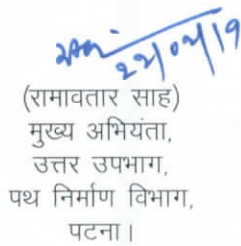 22/02/19
(रामावतार साह)
मुख्य अभियंता,
उत्तर उपभाग,
पथ निर्माण विभाग,
पटना।